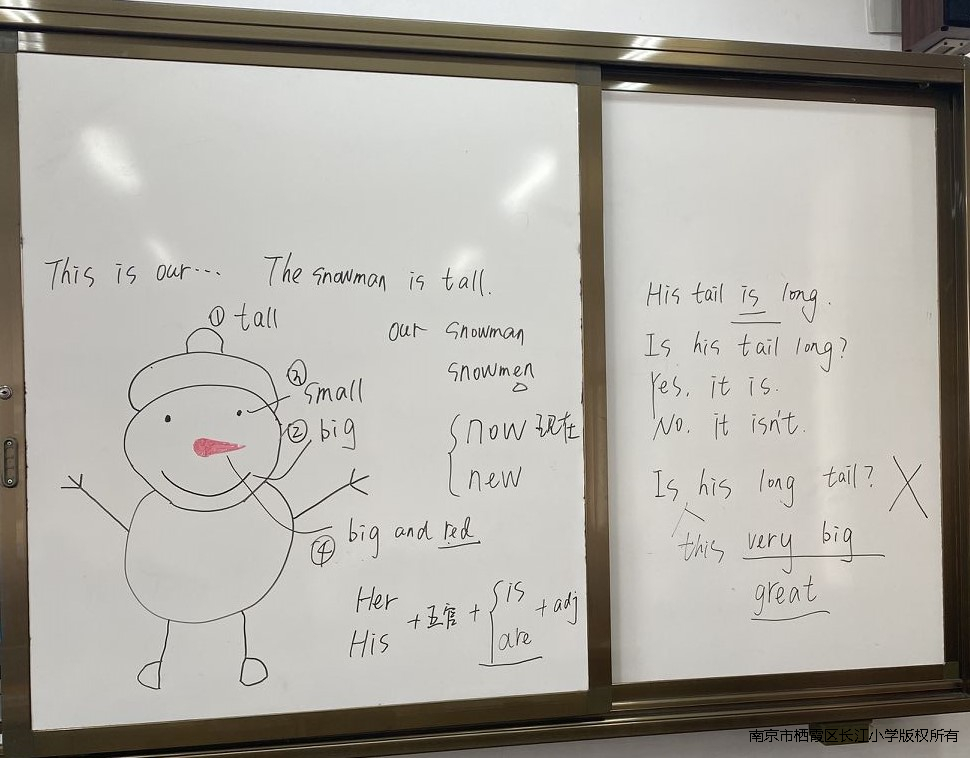 This is our... The snowman is tall.
① tall
our snowman
snowmen
③ small
② big
now 现在
new
④ big and red
Her
His
+五官+
is
are
+ adj
His tail is long.
Is his tail long?
Yes, it is.
No, it isn't.
Is his long tail? X
this very big
great
南京市栖霞区长江小学版权所有